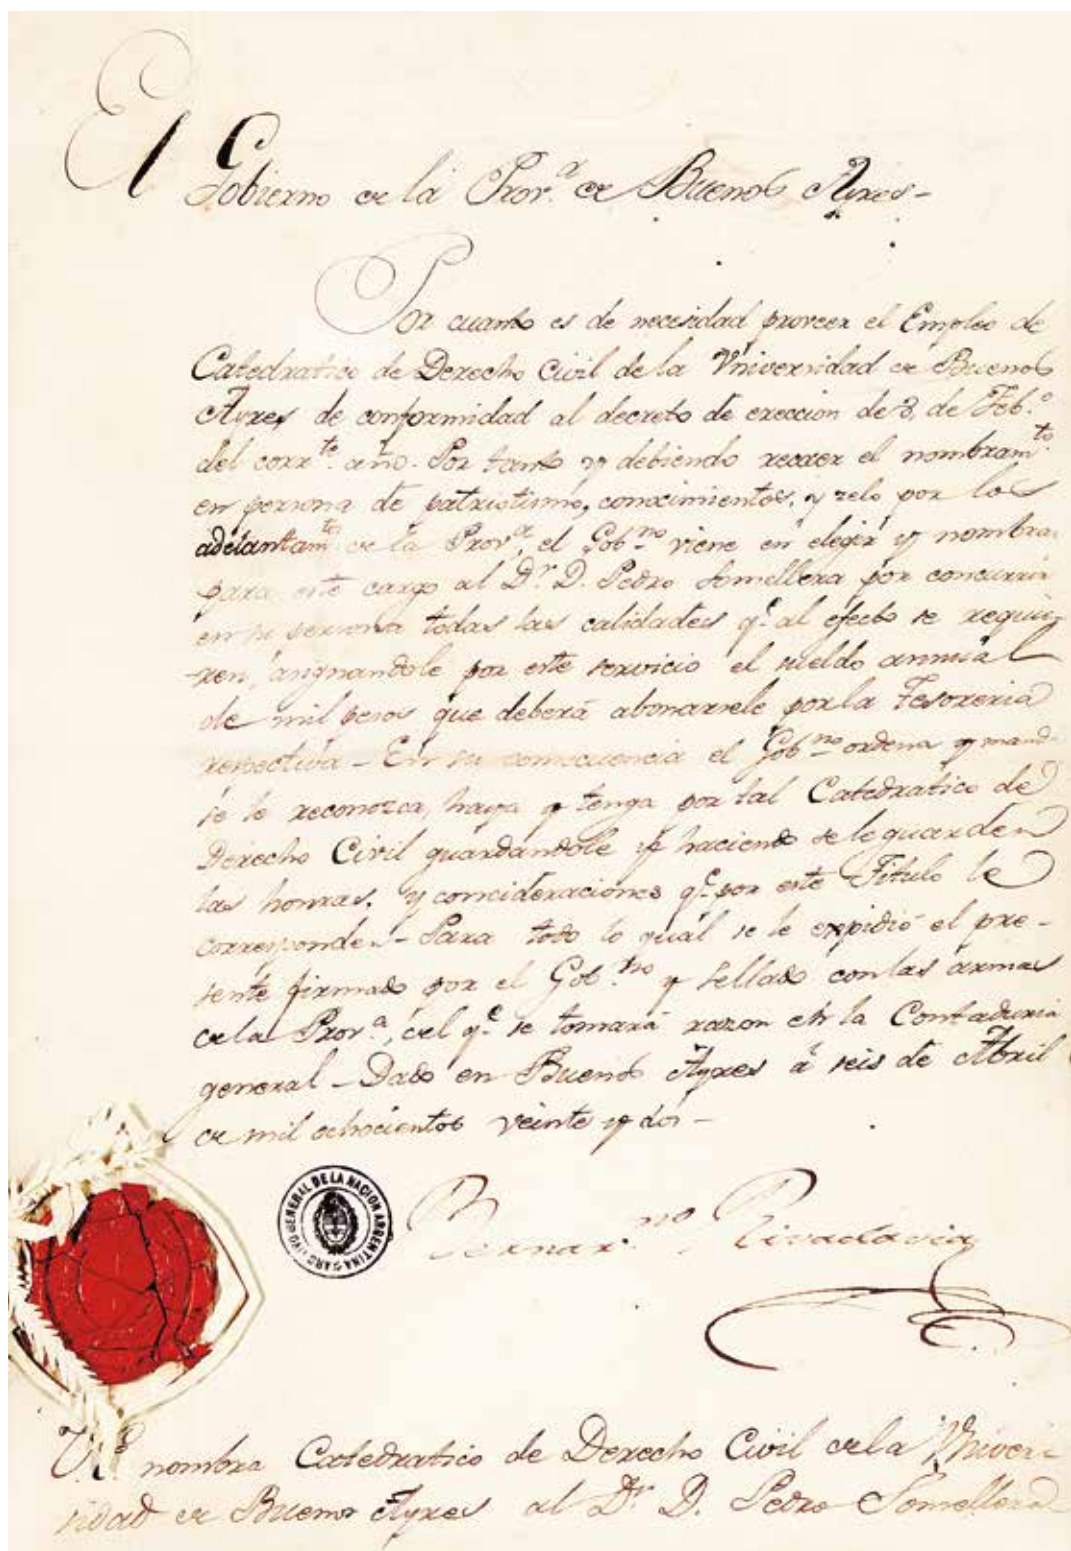 El Gobierno de la Prov.ª de Buenos Ayres-
Por cuanto es de necesidad proveer el Empleo de
Catedratico de Derecho Civil de la Vniversidad de Buenos
Ayres, de conformidad al decreto de ereccion de 8, de Feb.º
del corr.te año. Por tanto y debiendo recaer el nombram.to
en persona de patriotismo, conocimientos, y zelo por los
adelantam.tos de la Prov.ª, el Gob.no viene en elegir y nombrar
para este cargo al D.r D. Pedro Somellera por concurrir
en su persona todas las calidades q.e al efecto se requie-
-ren, asignandole por este servicio el sueldo annual
de mil pesos que deberá abonarsele por la Tesoreria
respectiva - En su consecuencia el Gob.no ordena y manda
se le reconozca, haya y tenga por tal Catedratico de
Derecho Civil guardandole y haciendo se le guarden
las honras, y concideraciones q.e por este Titulo le
corresponden - Para todo lo quál se le expidió el pre-
sente firmado por el Gob.no y sellado con las armas
de la Prov.ª, del q.e se tomará razon en la Contaduria
general - Dado en Buenos Ayres á seis de Abril
de mil ochocientos veinte y dos -
ARCHIVO GENERAL DE LA NACION ARGENTINA
Bernar.no Rivadavia
nombra Catedratico de Derecho Civil de la Vniver-
sidad de Buenos Ayres al D.r D. Pedro Somellera